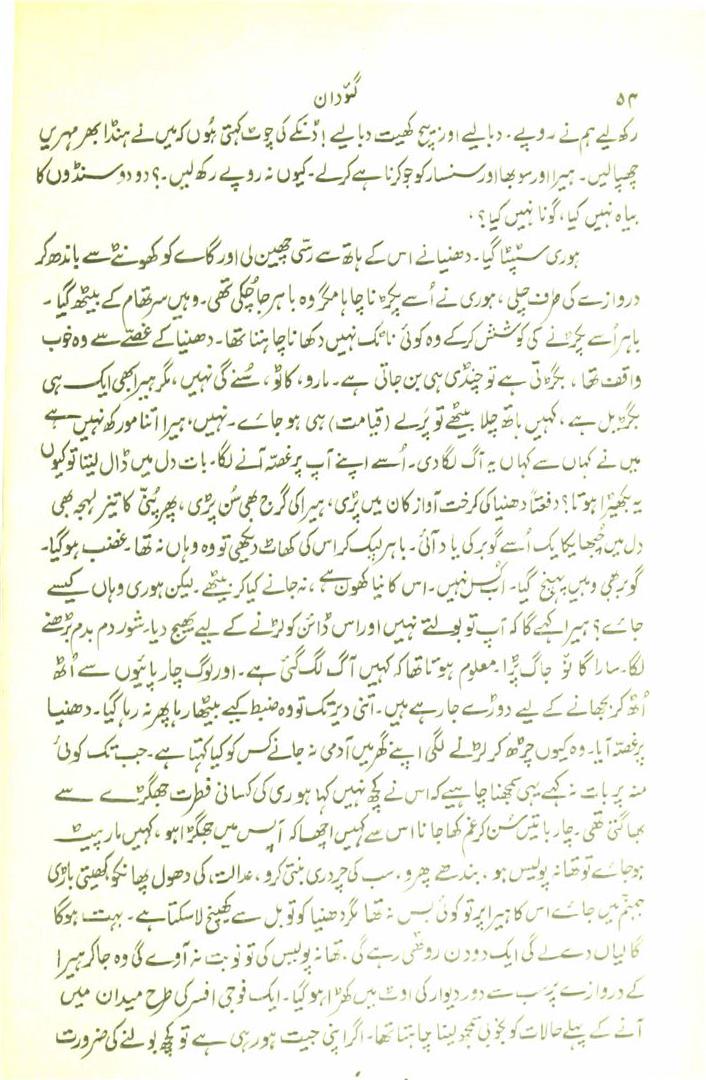 ۵۴ گئودان
رکھ لیے ہم نے روپے، دبا لیے اور بیچ کھیت دبا لیے! ڈنکے کی چوٹ کہتی ہوں کہ میں نے ہنڈا بھر مہریں
چھپا لیں۔ ہیرا اور سوبھا اور سنسار کو جو کرنا ہے کرلے۔ کیوں نہ روپے رکھ لیں۔؟ دو دو سنڈوں کا
بیاہ نہیں کیا، گونا نہیں کیا؟،
ہوری سٹپٹا گیا۔ دھنیا نے اس کے ہاتھ سے رسّی چھین لی اور گاے کو کھونٹے سے باندھ کر
دروازے کی طرف چلی، ہوری نے اُسے پکڑنا چاہا مگر وہ باہر جا چُکی تھی۔ وہیں سر تھام کے بیٹھ گیا۔
باہر اُسے پکڑنے کی کوشش کرکے وہ کوئی ناٹک نہیں دکھانا چاہتا تھا۔ دھنیا کے غصّے سے وہ خوب
واقف تھا، بگڑتی ہے تو چنڈی ہی بن جاتی ہے۔ مارو، کاٹو، سُنے گی نہیں، مگر ہیرا بھی ایک ہی
بگڑیل ہے، کہیں ہاتھ چلا بیٹھے تو پرلے (قیامت) ہی ہو جاے۔ نہیں، ہیرا اتنا مورکھ نہیں ہے
میں نے کہاں سے کہاں یہ آگ لگا دی۔ اُسے اپنے آپ پر غصّہ آنے لگا۔ بات دل میں ڈال لیتا تو کیوں
یہ بکھیڑا ہوتا؟ دفعتاً دھنیا کی کرخت آواز کان میں پڑی، ہیرا کی گرج بھی سُن پڑی، پھر پُنّی کا تیز لہجہ بھی
دل میں چُبھا یکایک اُسے گوبر کی یاد آئی۔ باہر لپک کر اس کی کھاٹ دیکھی تو وہ وہاں نہ تھا۔ غضب ہوگیا۔
گوبر بھی وہیں پہنچ گیا۔ اب کُسل نہیں۔ اس کا نیا کھون ہے، نہ جانے کیا کر بیٹھے۔ لیکن ہوری وہاں کیسے
جاے؟ ہیرا کہے گا کہ آپ تو بولتے نہیں اور اس ڈائن کو لڑنے کے لیے بھیج دیا۔ شور دم بدم بڑھنے
لگا۔ سارا گانؤ جاگ پڑا۔ معلوم ہوتا تھا کہ کہیں آگ لگ گئی ہے۔ اور لوگ چارپائیوں سے اُٹھ
اُٹھ کر بجھانے کے لیے دوڑے جارہے ہیں۔ اتنی دیر تک تو وہ ضبط کیے بیٹھا رہا پھر نہ رہا گیا۔ دھنیا
پر غصّہ آیا۔ وہ کیوں چڑھ کر لڑنے لگی اپنے گھر میں آدمی نہ جانے کس کو کیا کہتا ہے۔ جب تک کوئی
منہ پر بات نہ کہے یہی سمجھنا چاہیے کہ اس نے کچھ نہیں کہا ہوری کی کسانی فطرت جھگڑے سے
بھاگتی تھی۔ چار باتیں سُن کر غم کھا جانا اس سے کہیں اچھا کہ آپس میں جھگڑا ہو، کہیں مار پیٹ
ہوجاے تو تھانہ پولیس ہو، بندھے پھرو، سب کی چرَوری بنتی کرو، عدالت کی دھول پھانکو، کھیتی باڑی
جہنم میں جاے اس کا ہیرا پر تو کوئی بس نہ تھا مگر دھنیا کو تو بل سے کھینچ لا سکتا ہے۔ بہت ہوگا
گالیاں دے لے گی ایک دو دن روٹھی رہے گی، تھانہ پولیس کی تو نوبت نہ آوے گی وہ جاکر ہیرا
کے دروازے پر سب سے دور دیوار کی اوٹ میں کھڑا ہوگیا۔ ایک فوجی افسر کی طرح میدان میں
آنے کے پہلے حالات کو بخوبی سمجھ لینا چاہتا تھا۔ اگر اپنی جیت ہورہی ہے تو کچھ بولنے کی ضرورت